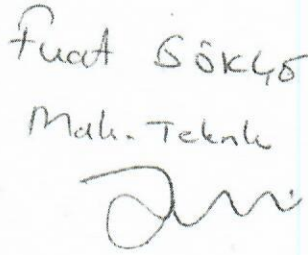 Fuat GÖKÇÖ
Mak. Teknik